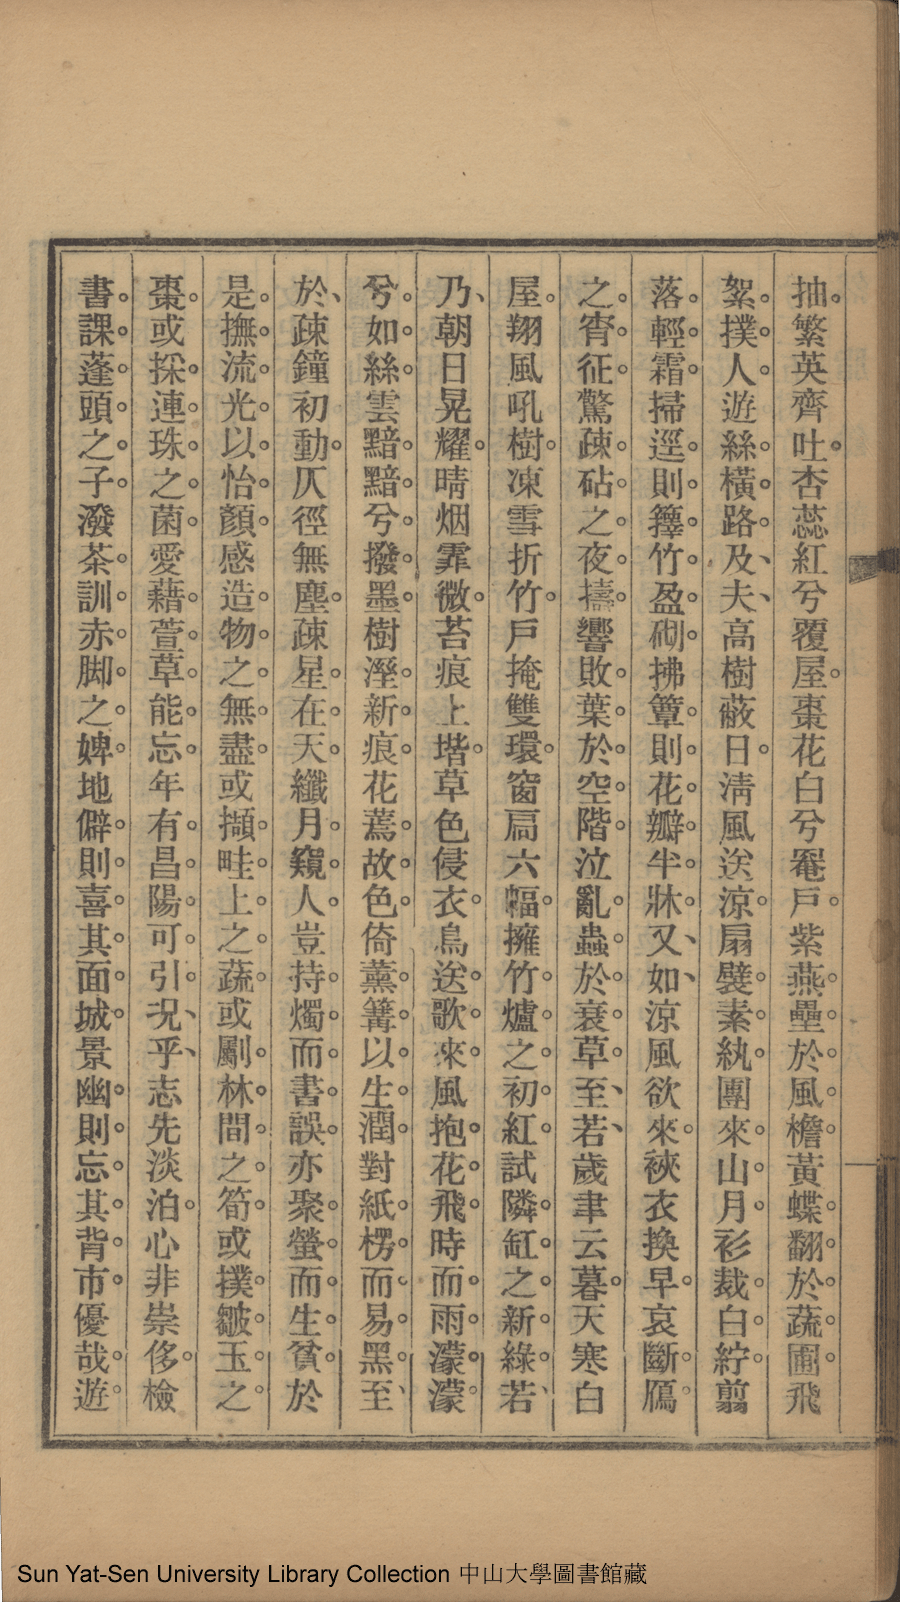 抽繁英齊吐杏蕊紅兮覆屋棗花白兮罨戶紫燕壘於風檐黃蝶翻於蔬圃飛
絮撲人遊絲橫路及夫高樹蔽日淸風送涼扇襞素紈團來山月衫裁白紵翦
落輕霜掃逕則籜竹盈砌拂簟則花瓣半牀又如涼風欲來裌衣換早哀斷鴈
之宵征驚疎砧之夜擣響敗葉於空階泣亂蟲於衰草至若歲聿云暮天寒白
屋翔風吼樹凍雪折竹戶掩雙環窗扃六幅擁竹爐之初紅試隣缸之新綠若
乃朝日晃耀晴烟霏微苔痕上堦草色侵衣鳥送歌來風抱花飛時而雨濛濛
兮如絲雲黯黯兮撥墨樹溼新痕花蔫故色倚薰篝以生潤對紙楞而易黑至
於疎鐘初動仄徑無塵疎星在天纖月窺人豈持燭而書誤亦聚螢而生貧於
是撫流光以怡顏感造物之無盡或擷畦上之蔬或劚林間之筍或撲皺玉之
棗或採連珠之菌愛藉萱草能忘年有昌陽可引況乎志先淡泊心非崇侈檢
書課蓬頭之子潑茶訓赤脚之婢地僻則喜其面城景幽則忘其背市優哉遊
Sun Yat-Sen University Library Collection 中山大學圖書館藏